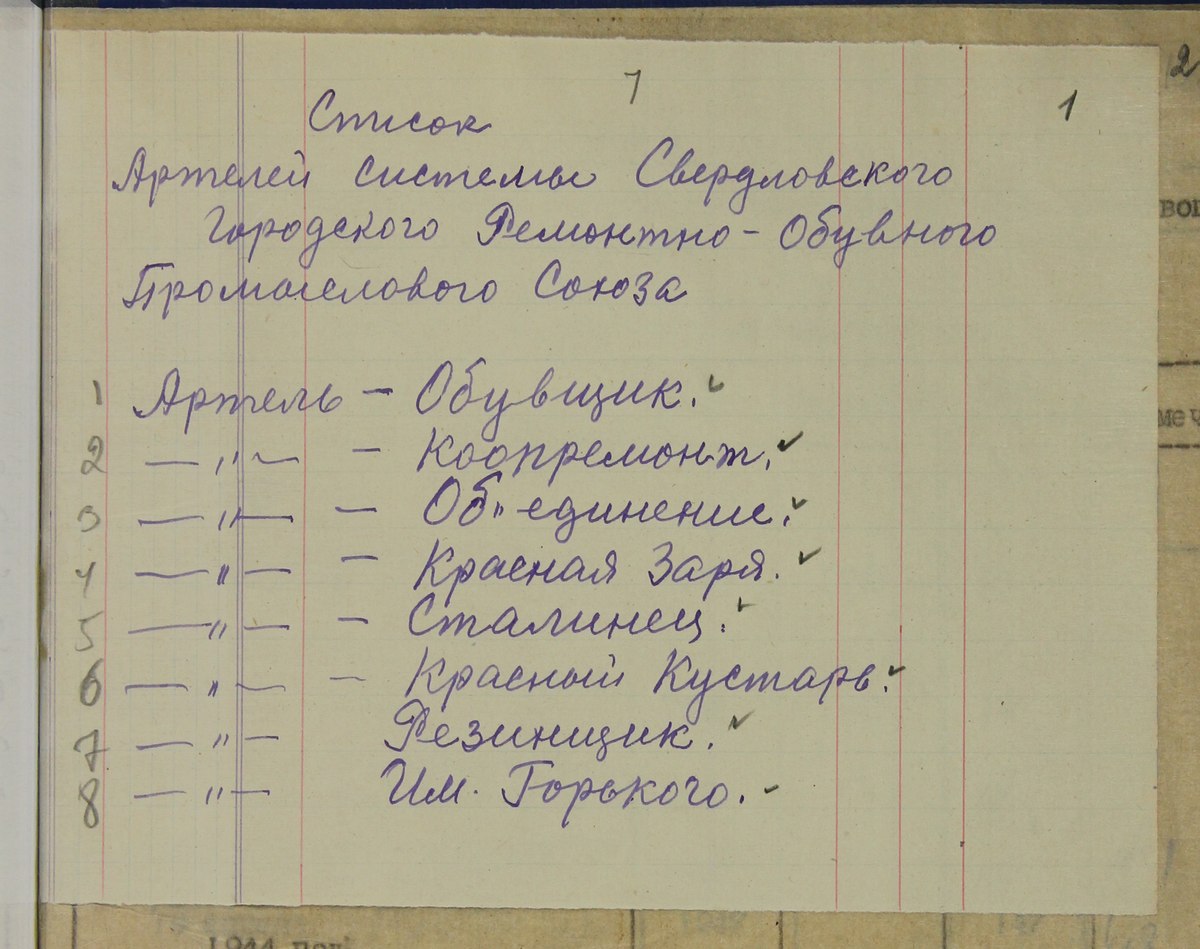 7
1
2
Список
Артелей системы Свердловского
Городского Ремонтно-Обувного
Промыслового Союза
1 Артель - Обувщик.
2 — „ — - Коопремонт.
3 — „ — - Об"единение.
4 — „ — - Красная Заря.
5 — „ — - Сталинец.
6 — „ — - Красный Кустарь.
7 — „ — Резинщик.
8 — „ — Им. Горького.